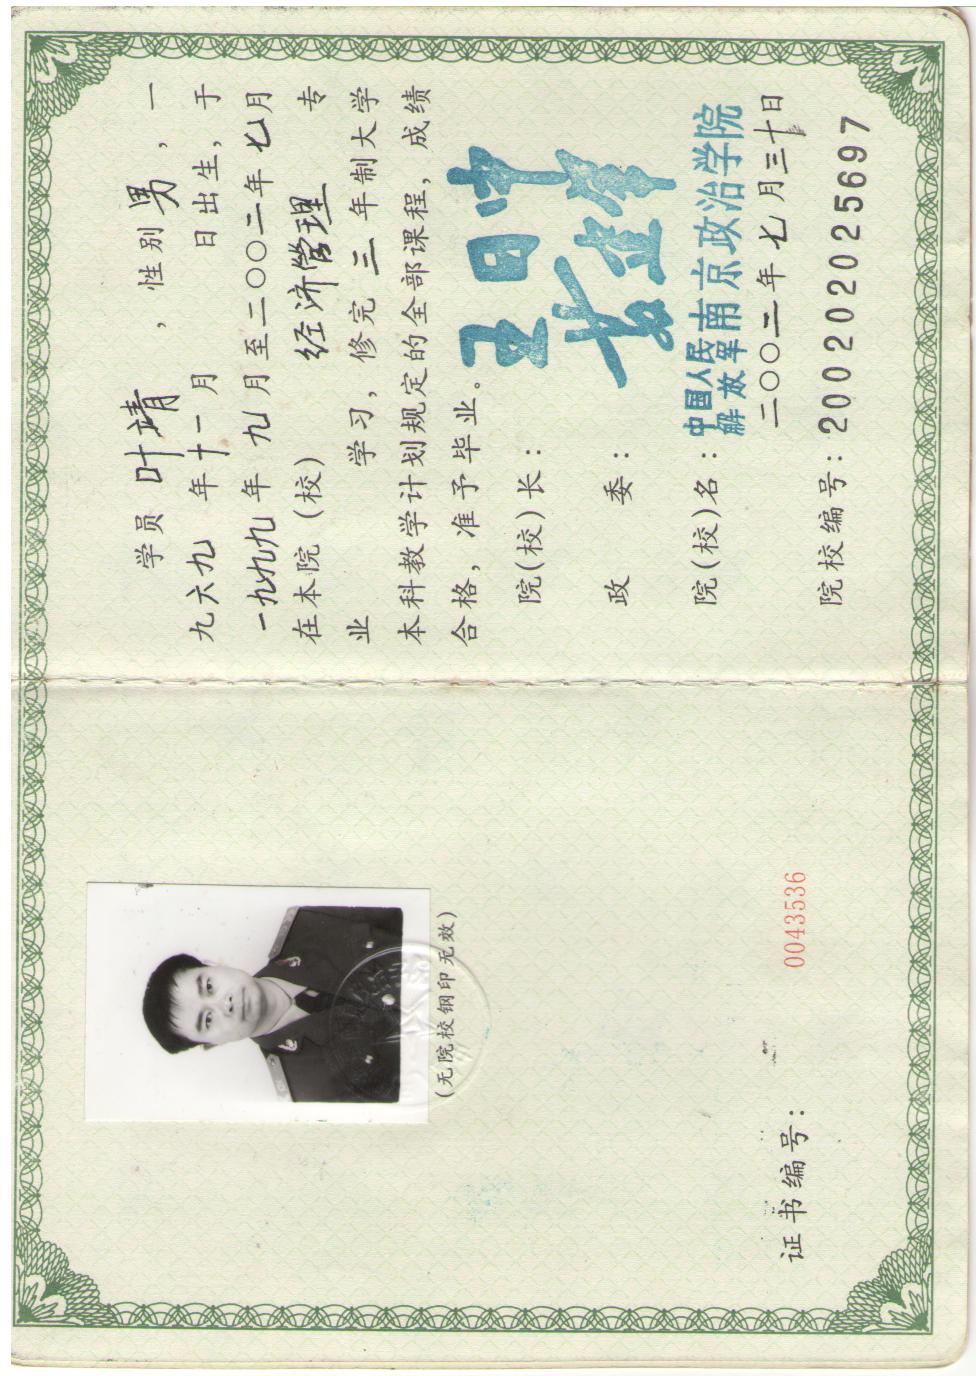 证书编号： 0043536
(无院校钢印无效)
学员 叶靖 ，性别 男 ，一
九六九 年 十一 月 日出生，于
一九九九 年 九 月至二〇〇二年 七 月
在本院（校） 经济管理 专
业 学习，修完 三 年制大学
本科教学计划规定的全部课程，成绩
合格，准予毕业。
院(校)长：
政 委：
院(校)名：中国人民解放军南京政治学院
二〇〇二年七月三十日
院校编号：20020202025697